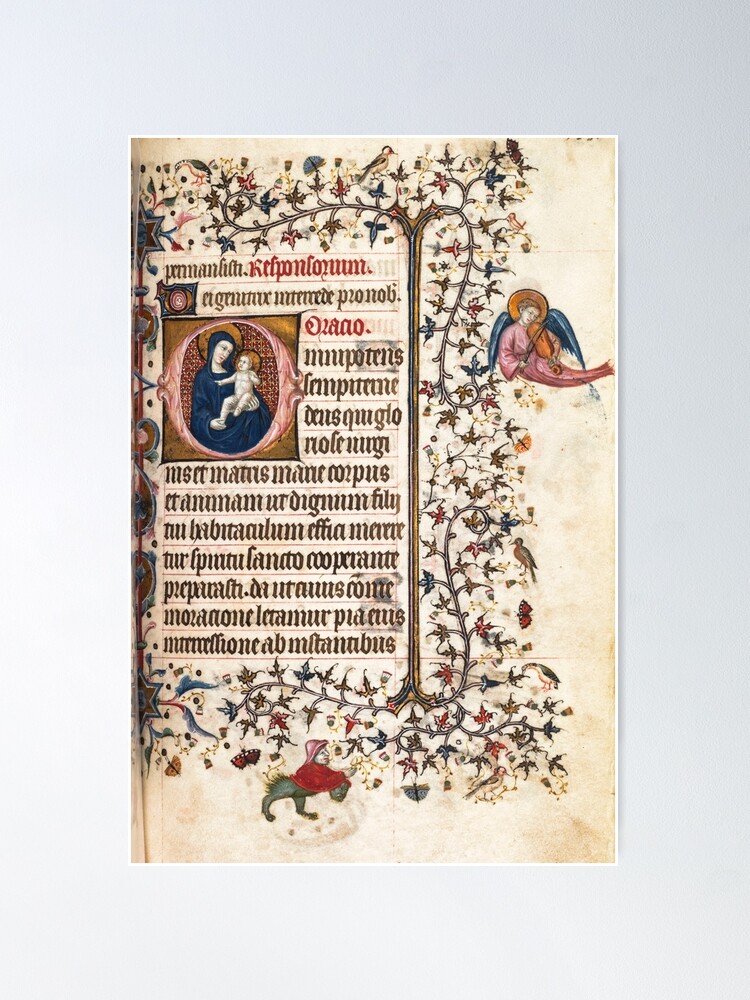 permansisti. Responsorium.
Dei genitrix intercede pro nob.
Oracio.
Omnipotens
sempiterne
deus qui glo
riose virgi
nis et matris marie corpus
et animam ut dignum filij
tui habitaculum effici merere
tur spiritu sancto cooperante
preparasti. da ut cuius come
moracione letamur pia eius
intercessione ab instantibus